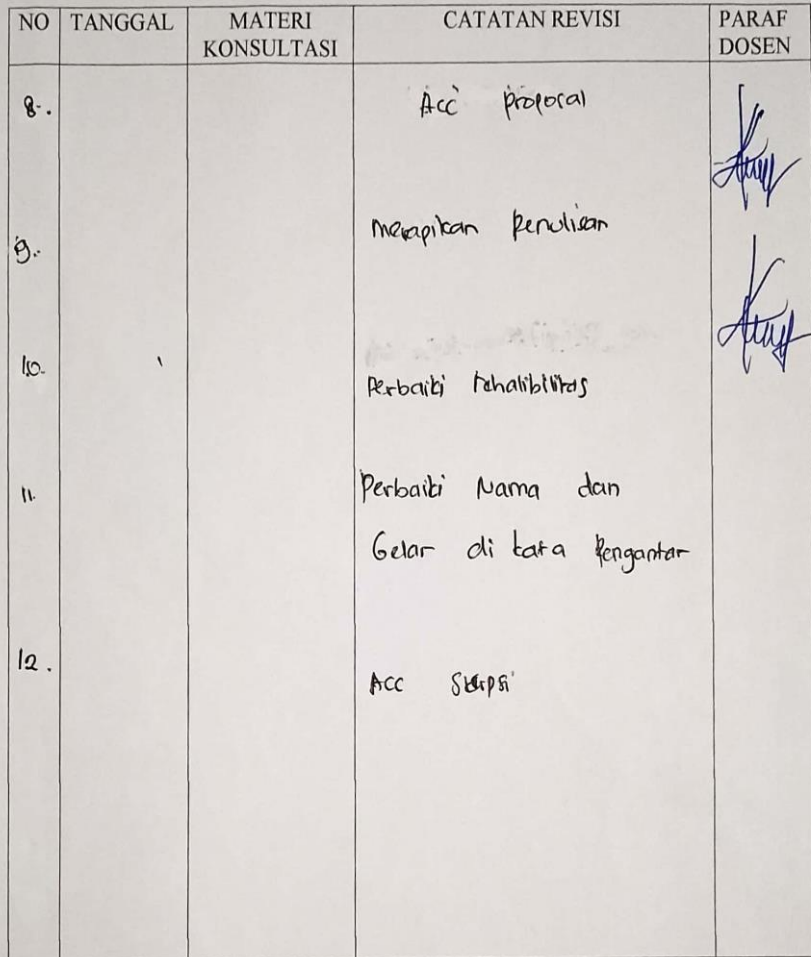 NO TANGGAL MATERI KONSULTASI CATATAN REVISI PARAF DOSEN
8. Acc proposal
9. merapikan penulisan
10. Perbaiki
11. Perbaiki Nama dan
Gelar di kata Pengantar
12. ACC Skripsi